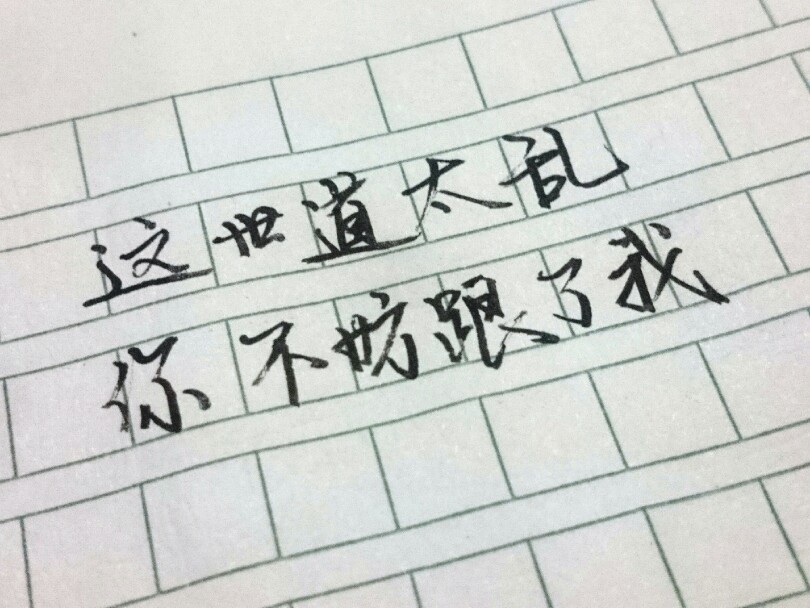 这世道太乱
你不妨跟了我